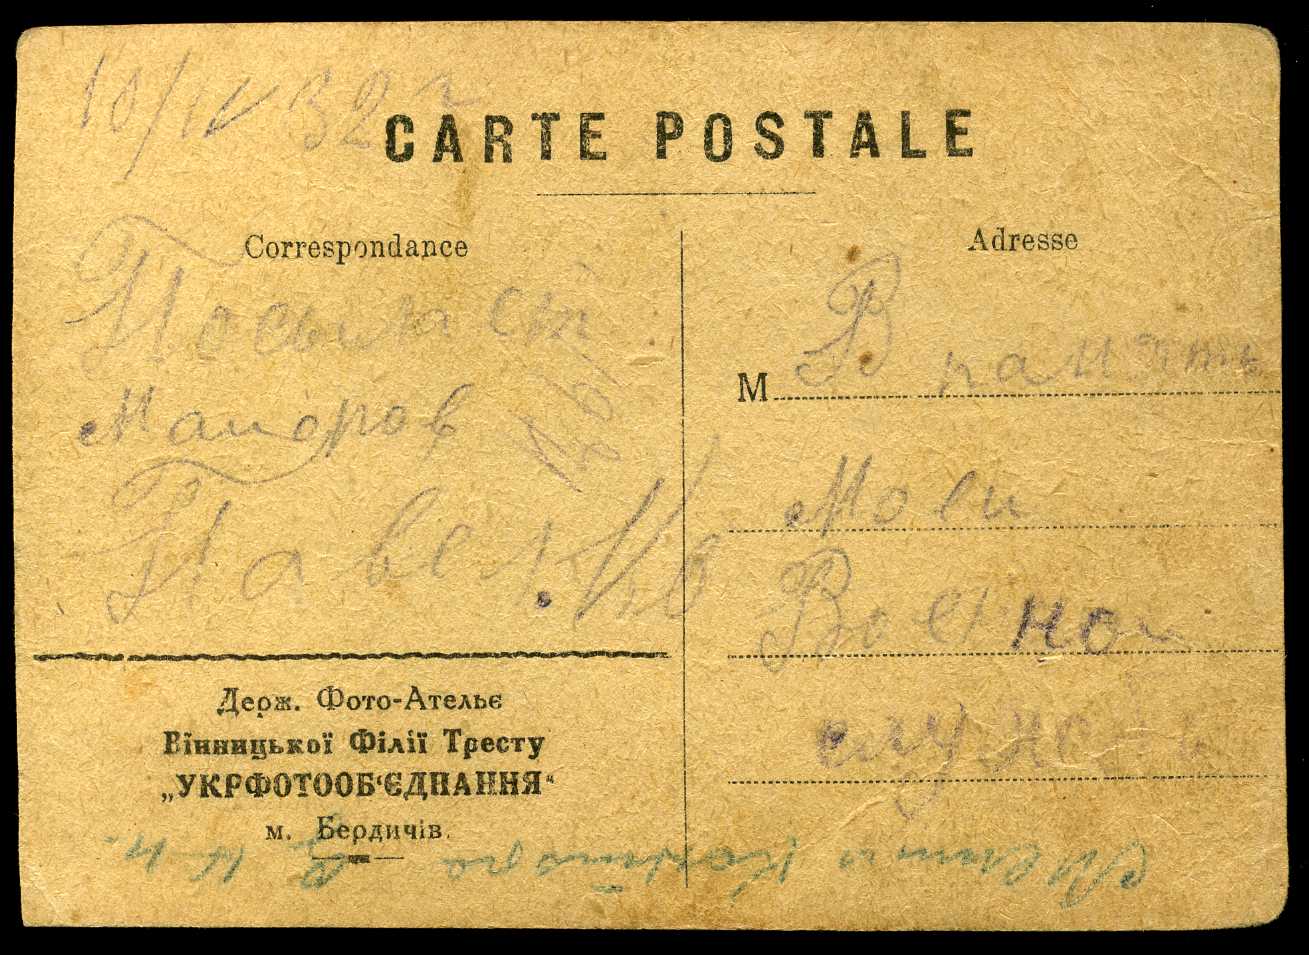 10/IV 32 г
CARTE POSTALE
Correspondance
Adresse
Посылает
Маиоров
Павел
М В память
Моеи
Военои
службы
Держ. Фото-Ательє
Вінницької Філії Тресту
„УКРФОТООБ'ЄДНАННЯ“
м. Бердичів.